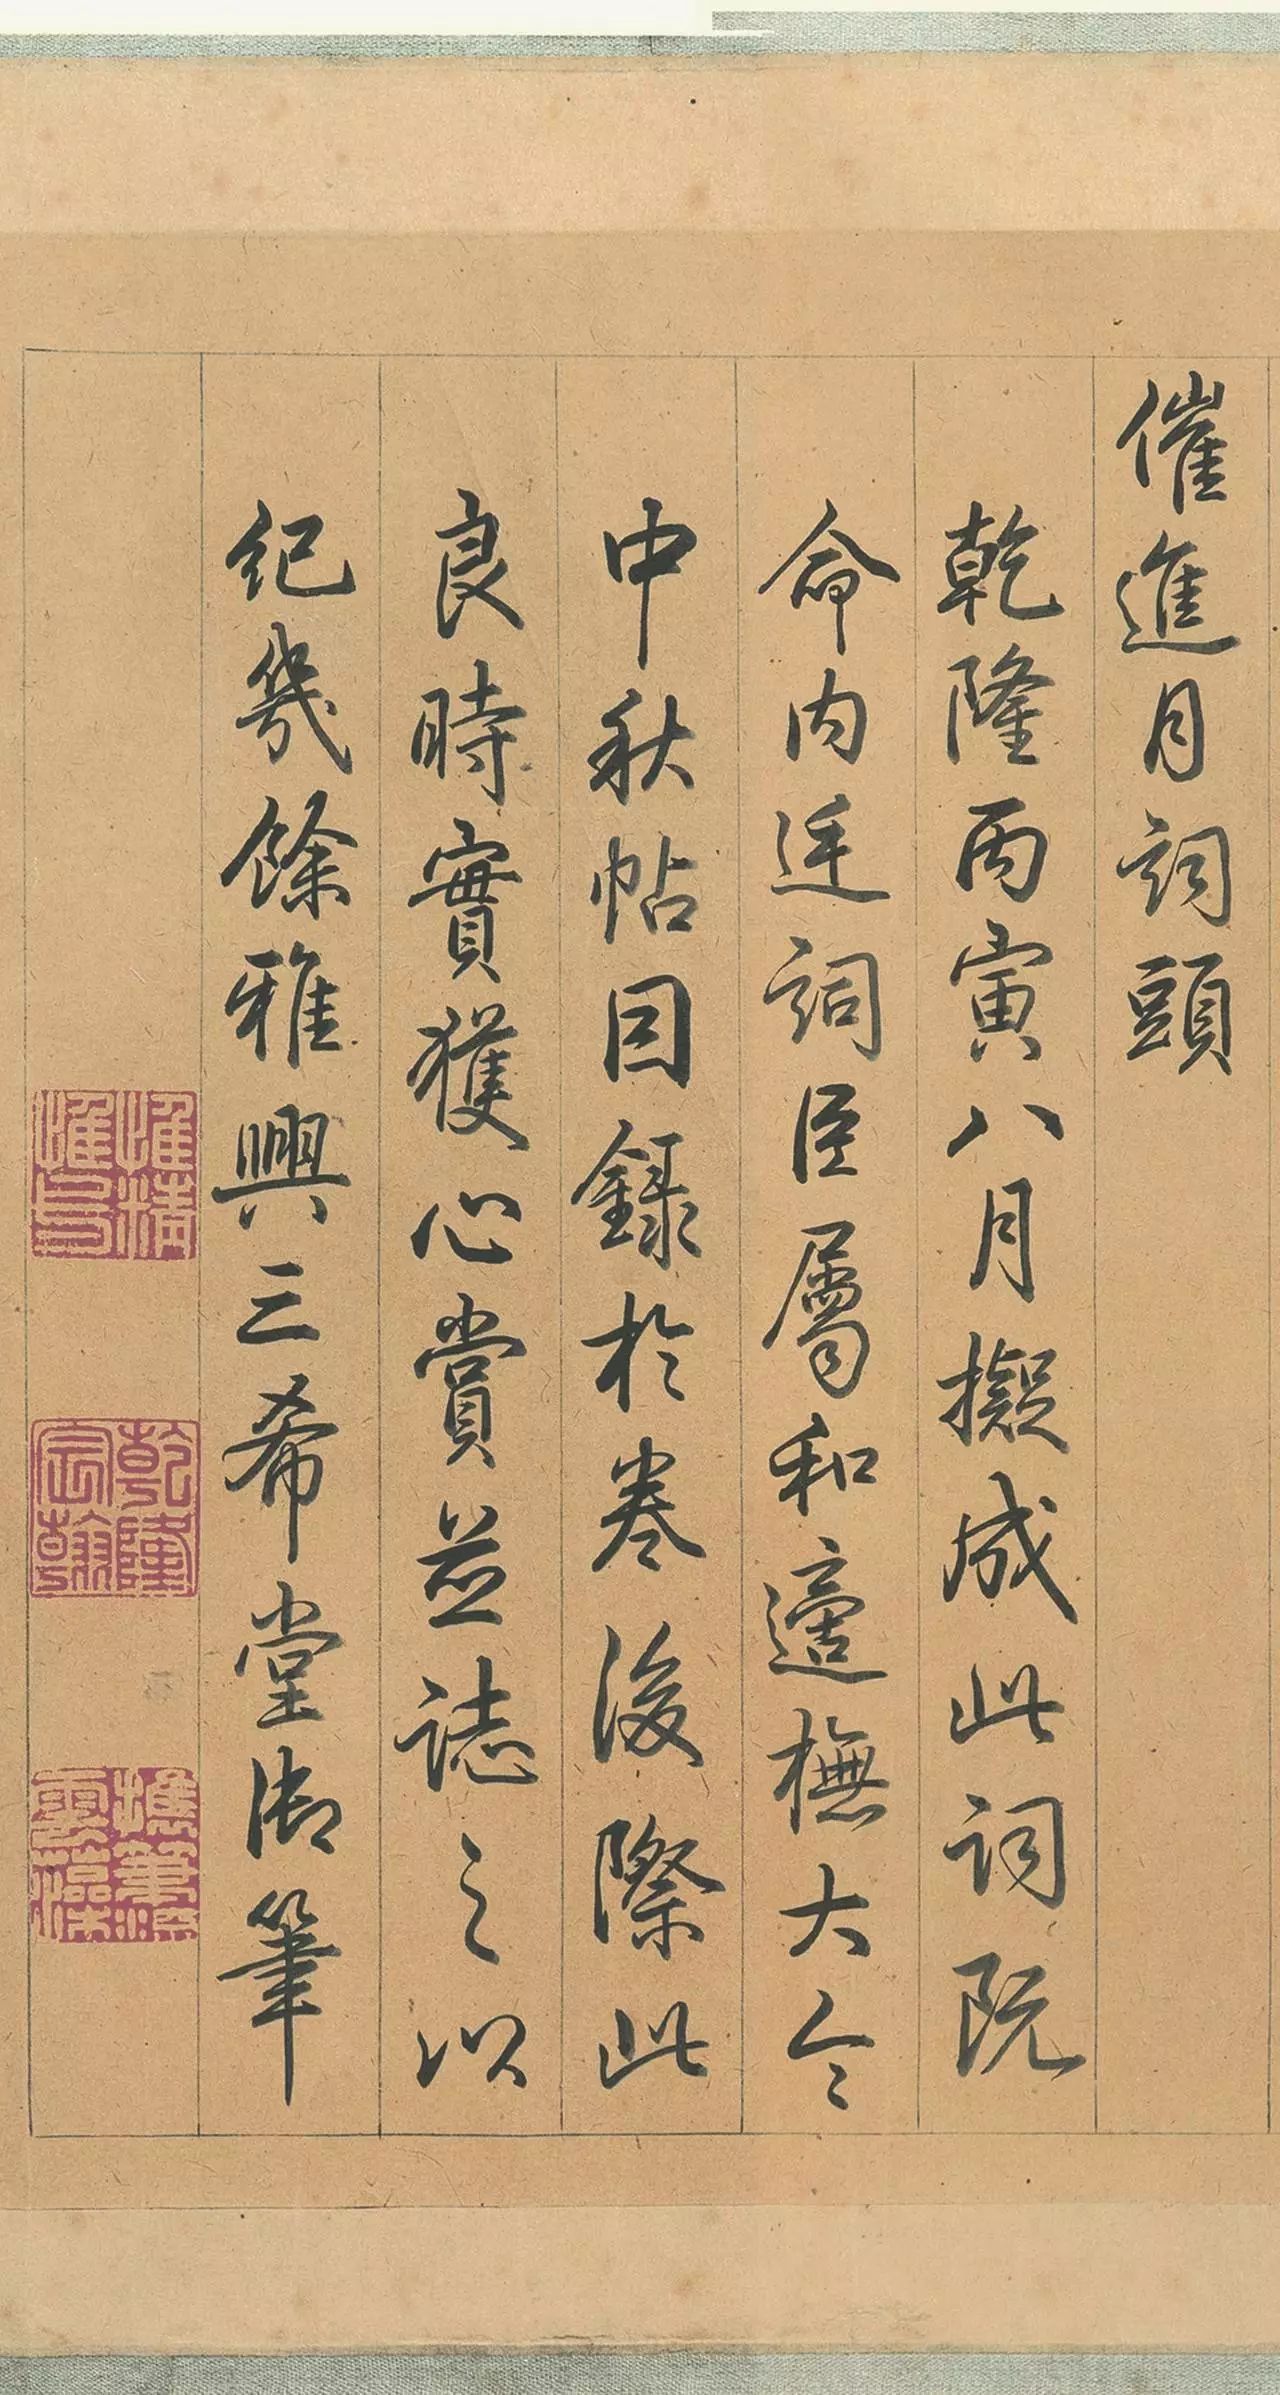 催進月詞頭
乾隆丙寅八月擬成此詞既
命内廷詞臣屬和適橅大令
中秋帖因錄於卷後際此
良時實獲心賞並誌之以
紀幾餘雅興三希堂御筆
乾隆宸翰